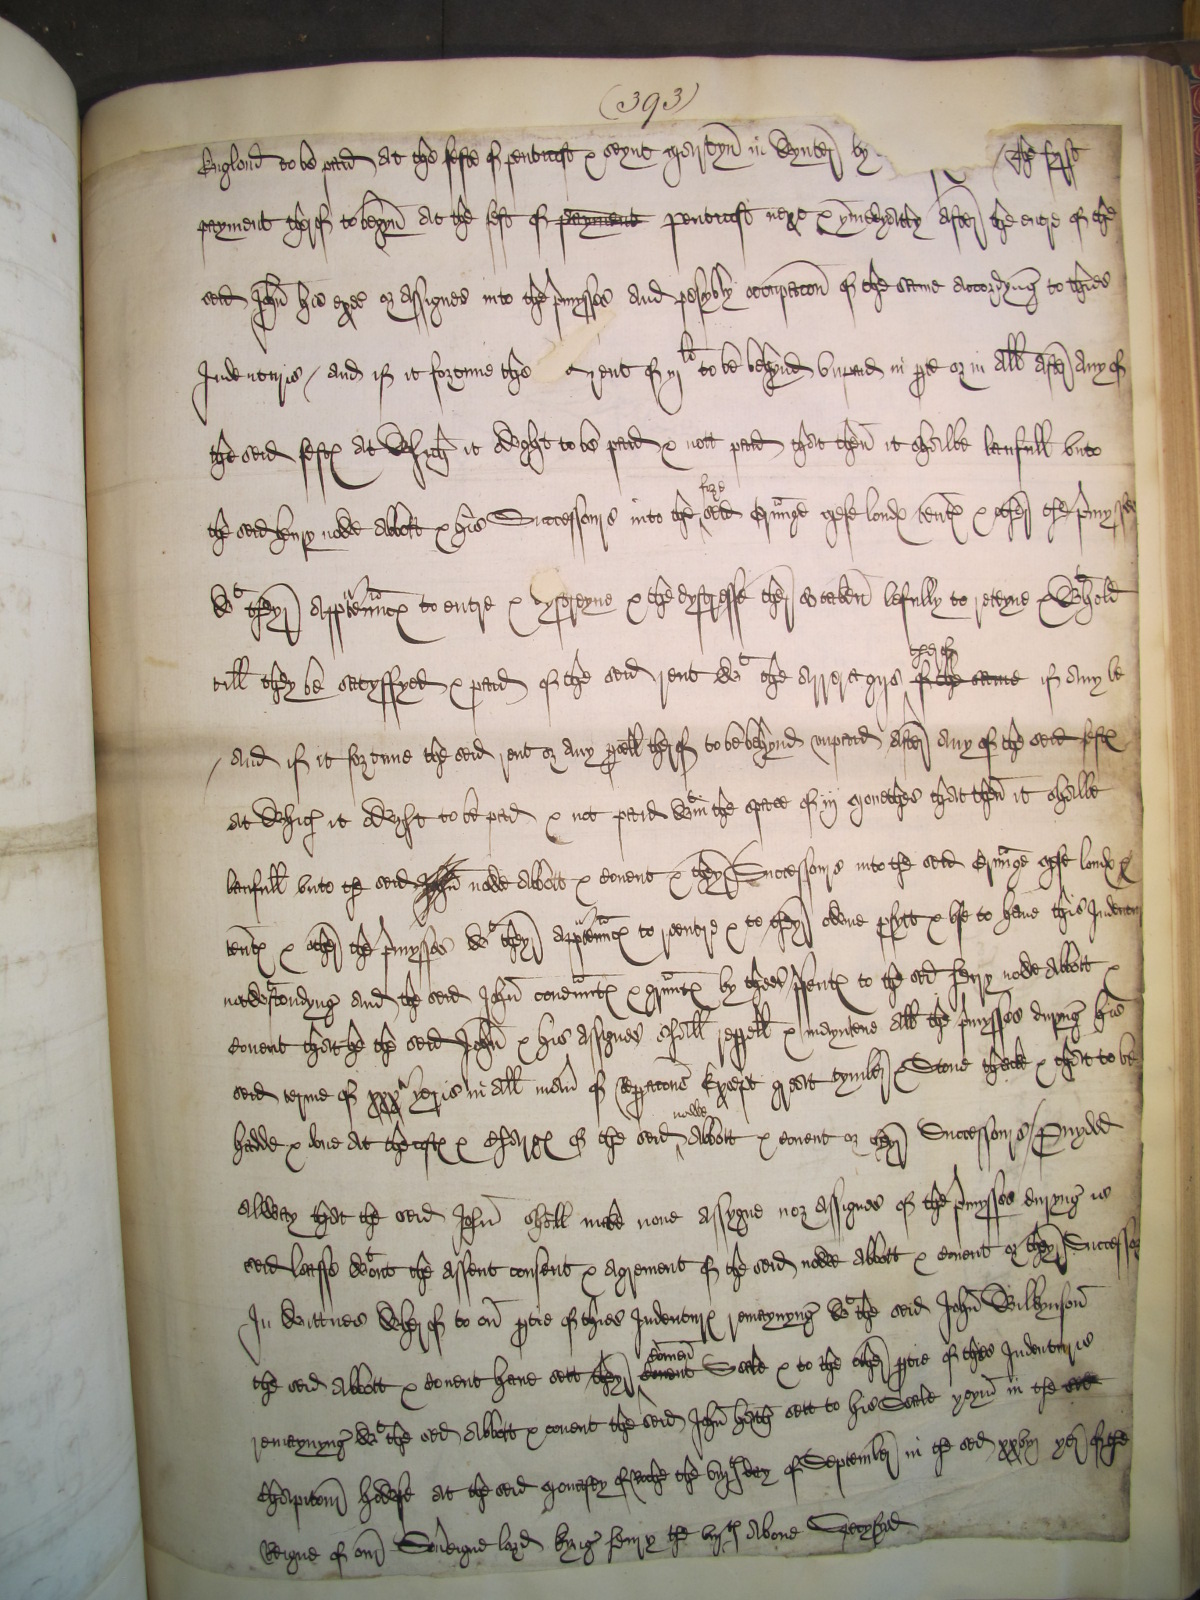 (393)
Englond to be paid at the feste of pentecost & seynt Martyn in Wynter by the fyrst
payment therof to begyn at the fest of payment pentecost next & ymmedyatly after the entre of the
seid John his exec or assignes into the p'mysses and pesybly occupacon of the same accordyng to thies
Indenturis / and if it fortune the rent of iij li to be behynd unpaid in p'te or in all after any of
the seid festes at Which it Ought to be paid & nott paid that then it shalbe laufull unto
the seid henry nowe Abbott & his Successours into the fore seid Graunge close londes tentes & other the p'mysses
Wt theyr appurtenntes to entre & dystreyne & the dystresse ther so taken lefully to reteyne & Wthold
till they be satysfyed & paid of the seid rent Wt the arreragis therof of the same if any be
/ And if it fortune the seid rent or any p'cell therof to be behynd unpaid after any of the seid festes
at Which it Ought to be paid & not paid Wtin the space of iij monethes that then it shalbe
laufull unto the seid John nowe Abbott & covent & theyr Successours into the seid Graunge close londes
tentes & other the p'mysses Wt theyr appurtenntes to reentre & to theyr owne p'fytt & use to have this Indentur
notWtstondyng And the seid John convauntes & grauntes by thees p'sentes to the seid henry nowe Abbott &
covent that he the seid John & his assignes shall repell & maynteine all the p'mysses duryng his
seid terme of xxxti yeris in all man' of Rep'acons Except great tymber & Stone thacke & that to be
hadde & done at the costes & Charges of the seid nowe Abbott & covent or theyr Successours / Provyded
alWay that the seid John shall make none assygne nor assignes of the p'mysses duryng is
seid leasse Wtout the assent consent & agrement of the seid nowe Abbott & covent or theyr Successours
In Wittnes Wherof to on p'tie of thies Indentures remaynyng Wt the seid John Wilkynson
the seid Abbott & covent have sett theyr covent comen Seale & to the other p'tie of thies Indenturis
remaynyng Wt the seid Abbott & covent the seid John hath sett to his Seale yevyn in the seid
Chapitour howse at the seid monastery of Roche the day of September in the seid yer of the
Reigne of our Sov'eigne lord kyng henry the viijth Above Specyfyed